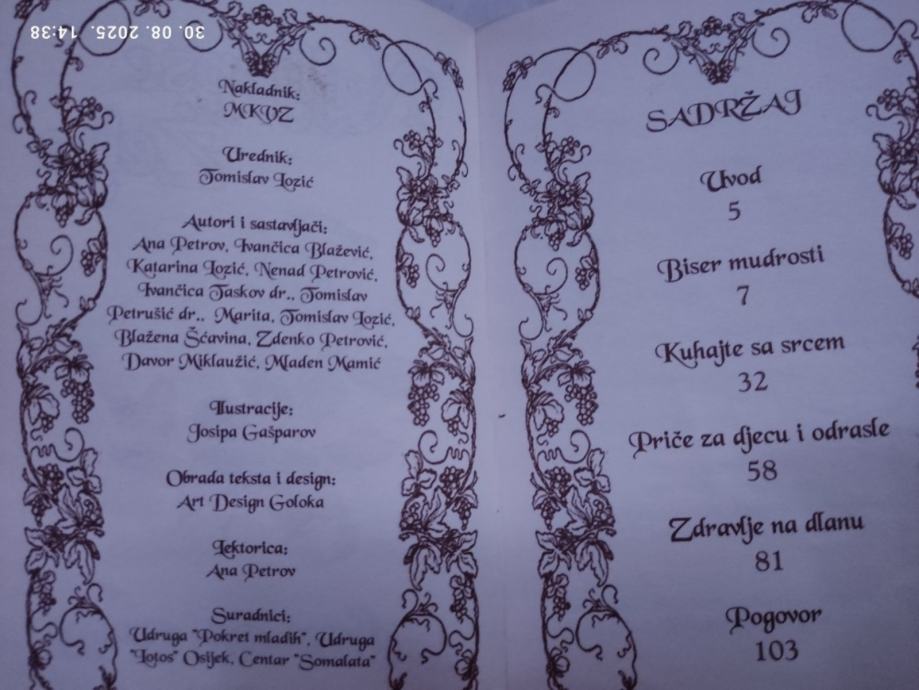 30. 08. 2025. 14:38
Nakladnik:
MKVZ
Urednik:
Tomislav Lozić
Autori i sastavljači:
Ana Petrov, Ivančica Blažević,
Katarina Lozić, Nenad Petrović,
Ivančica Taskov dr., Tomislav
Petrušić dr., Marita, Tomislav Lozić,
Blažena Šćavina, Zdenko Petrović,
Davor Miklaužić, Mladen Mamić
Ilustracije:
Josipa Gašparov
Obrada teksta i design:
Art Design Goloka
Lektorica:
Ana Petrov
Suradnici:
Udruga "Pokret mladih", Udruga
"Lotos" Osijek, Centar "Somalata"
SADRŽAJ
Uvod
5
Biser mudrosti
7
Kuhajte sa srcem
32
Priče za djecu i odrasle
58
Zdravlje na dlanu
81
Pogovor
103